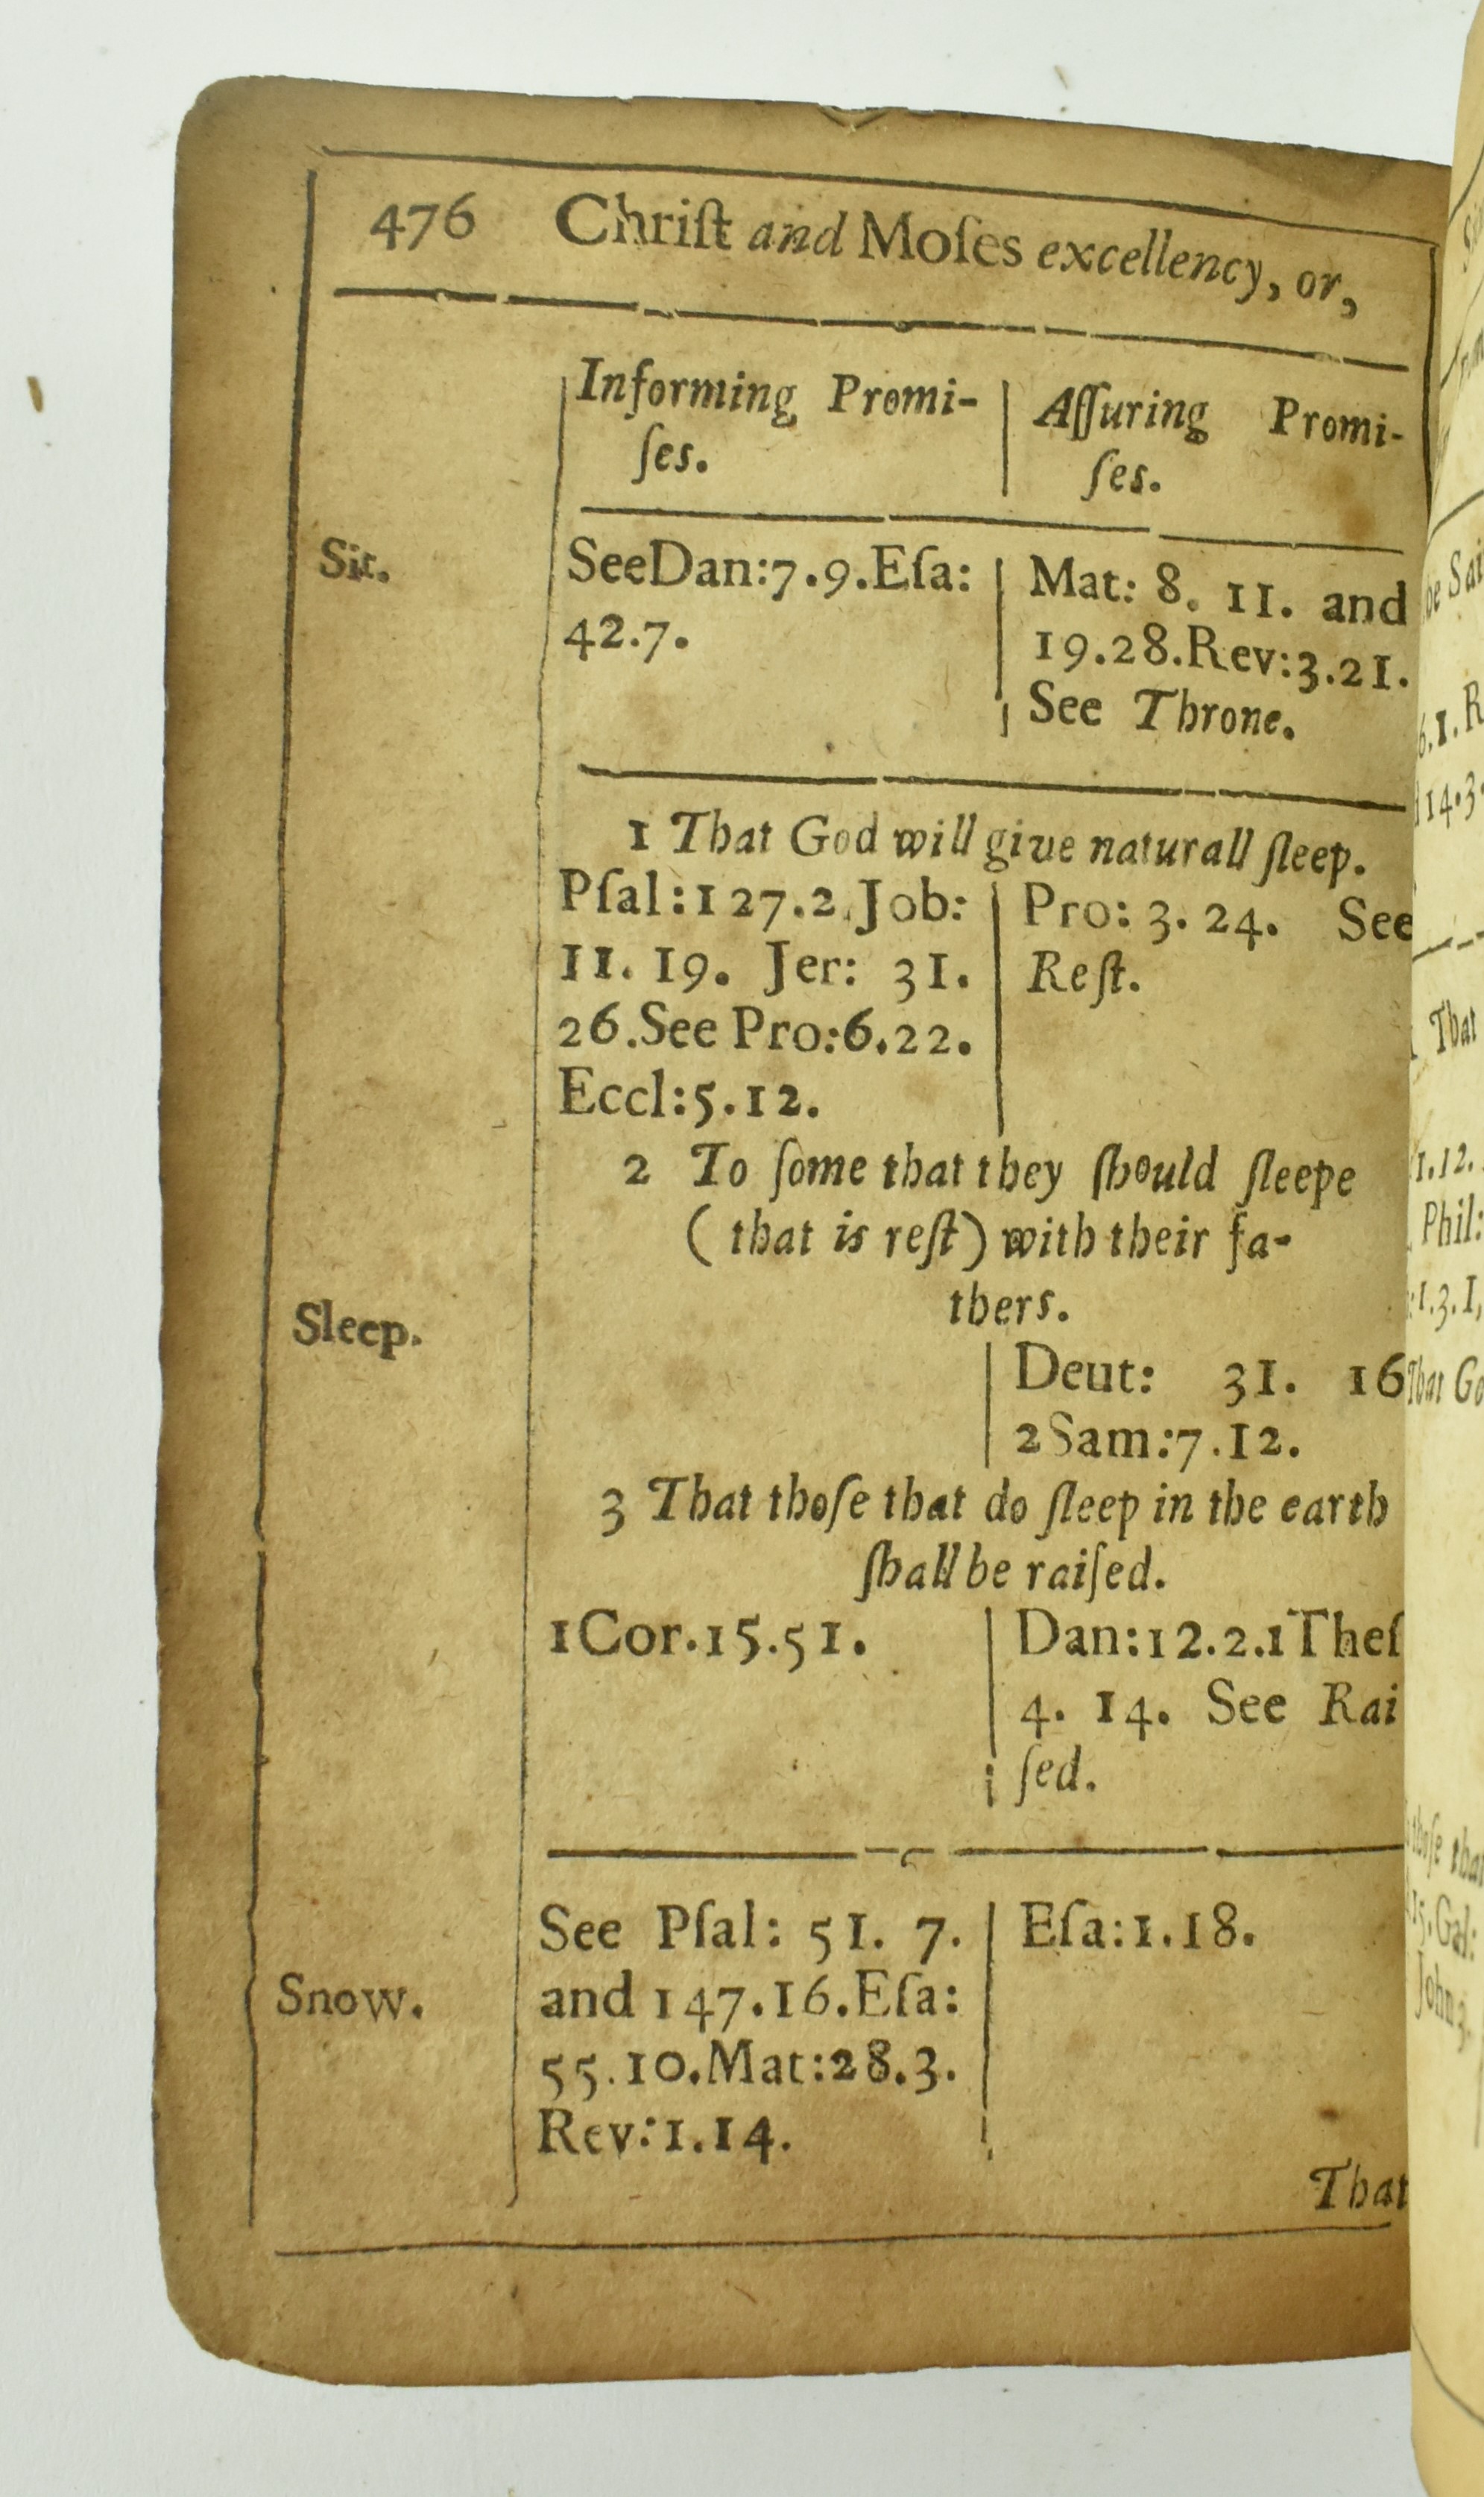 476 Chriſt and Moſes excellency, or,
Informing Promi-
ſes.
Aſſuring Promi-
ſes.
Sit.
SeeDan:7.9.Eſa:
42.7.
Mat: 8. 11. and
19.28.Rev:3.21.
See Throne.
1 That God will give naturall ſleep.
Pſal:127.2.Job:
11. 19. Jer: 31.
26.See Pro:6.22.
Eccl:5.12.
Pro: 3. 24. See
Reſt.
2 To ſome that they ſhould ſleepe
( that is reſt) with their fa-
thers.
Sleep.
Deut: 31. 16
2Sam:7.12.
3 That thoſe that do ſleep in the earth
ſhall be raiſed.
1Cor.15.51.
Dan:12.2.1Theſ
4. 14. See Rai
ſed.
Snow.
See Pſal: 51. 7.
and 147.16.Eſa:
55.10.Mat:28.3.
Rev:1.14.
Eſa:1.18.
That
be Sai
6.1.R
14.3.
That
1.12.
Phil:
1.3.I,
That Go
thoſe that
15.Gal:
John 3.